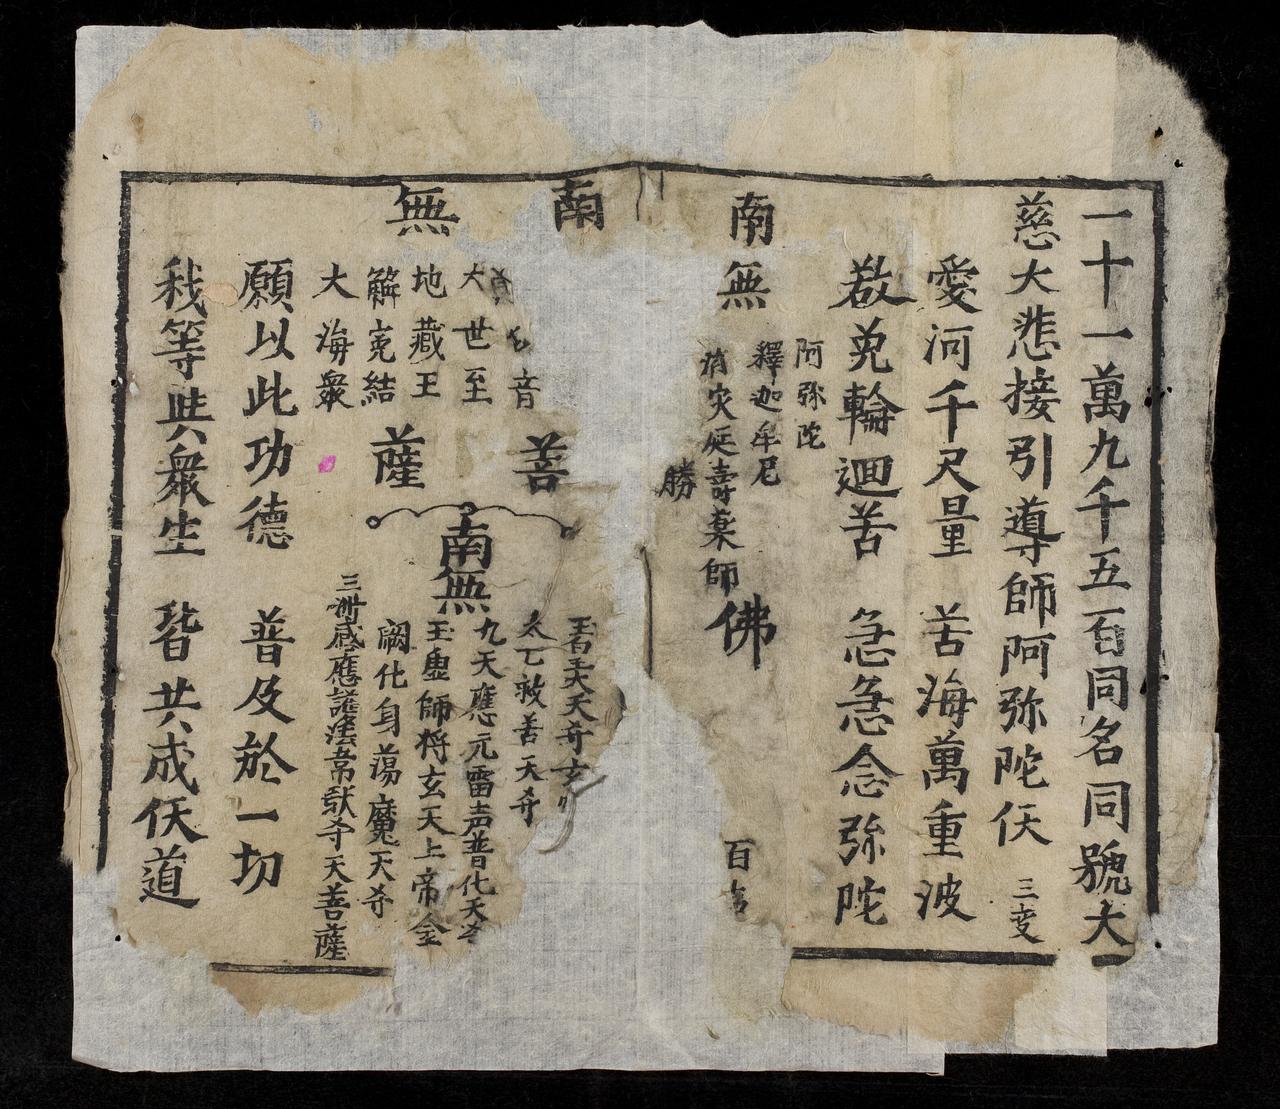 一十一萬九千五百同名同號大
慈大悲接引導師阿弥陀仸 三变
愛河千尺量 苦海萬重波
欲免輪迴苦 急急念弥陀
南無
阿弥陀
釋迦牟尼
消灾延壽薬師
勝
佛
百
南無
音
大世至
地藏王
觧寃結
大海衆
菩薩
南無
太乙救苦天尊
九天應元雷声普化天尊
玉虚師将玄天上帝金
阙化身蕩魔天尊
三卅感應護法
天菩薩
願以此功德 普及於一切
我等與衆生 皆共成仸道